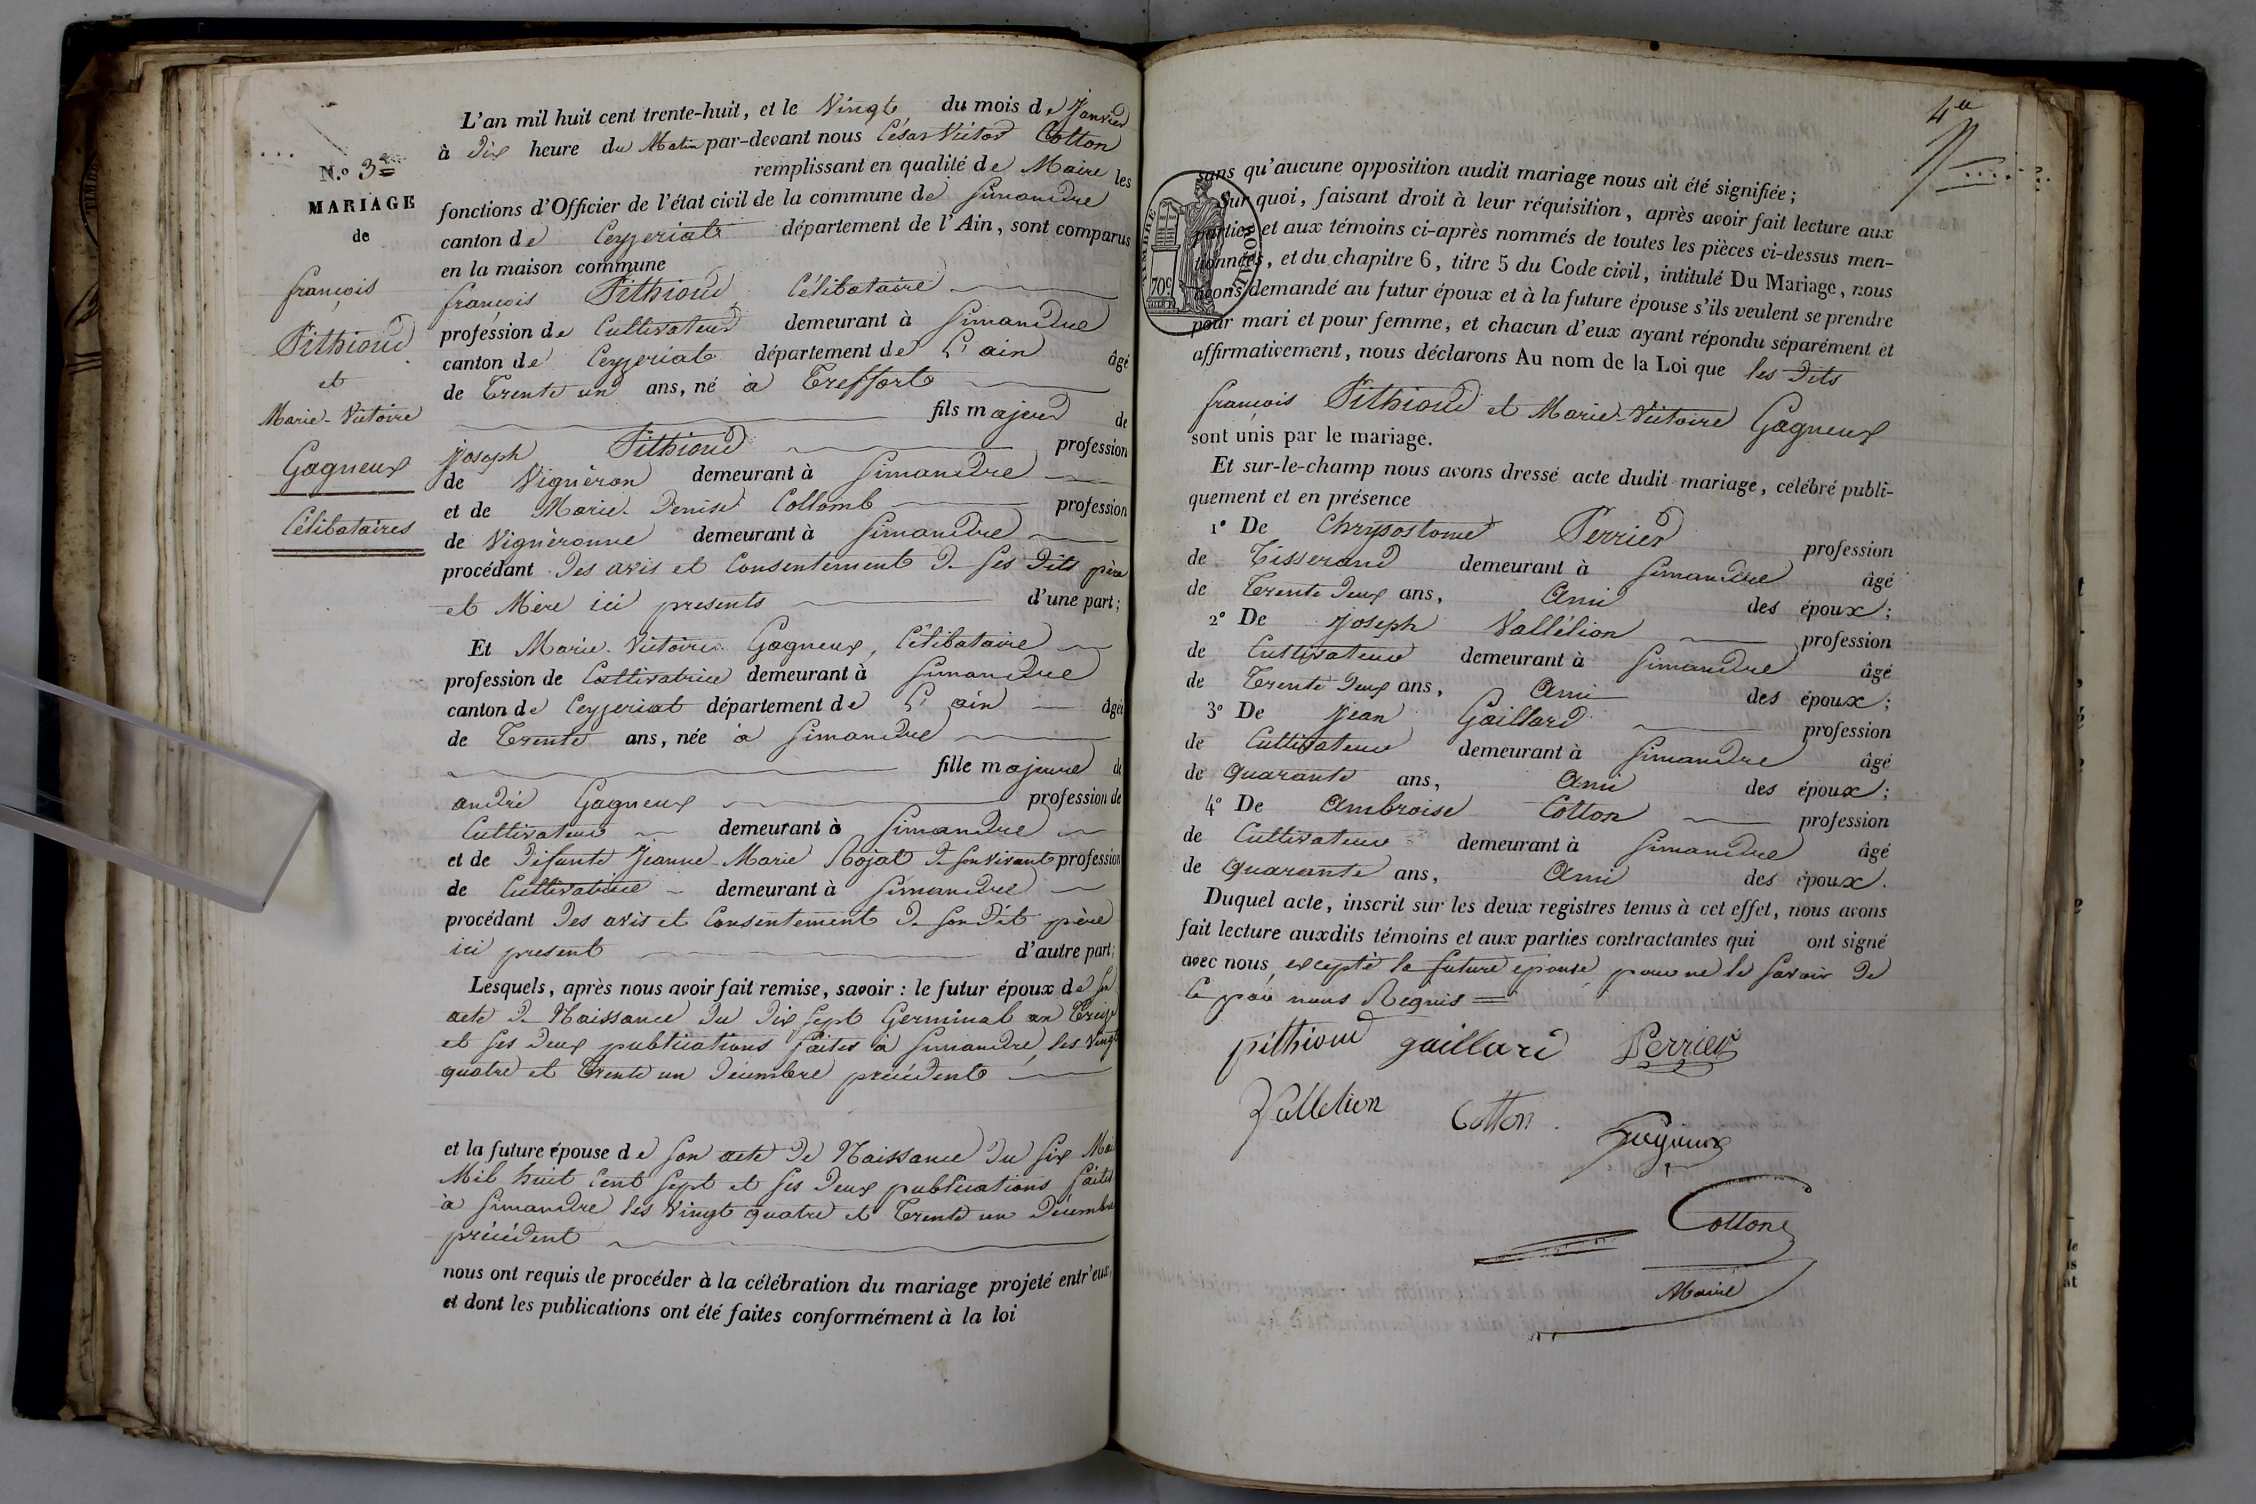 N.º 3
MARIAGE
de
françois
Pithioud
et
Marie-Victoire
Gagneux
Célibataires
L'an mil huit cent trente-huit, et le Vingt du mois de Janvier
à Dix heure du Matin par-devant nous César Victor Cotton
remplissant en qualité de Maire les
fonctions d'Officier de l'état civil de la commune de Simandre
canton de Ceyzeriat département de l'Ain, sont comparus
en la maison commune
françois Pithioud, Célibataire
profession de Cultivateur demeurant à Simandre
canton de Ceyzeriat département de L'ain âgé
de Trente un ans, né à Treffort
fils majeur de
Joseph Pithioud profession
de Vigneron demeurant à Simandre
et de Marie Denise Collomb profession
de Vigneronne demeurant à Simandre
procédant Des avis et Consentement De Ses Dits père
et Mère ici presents d'une part;
Et Marie-Victoire Gagneux, Célibataire
profession de Cultivatrice demeurant à Simandre
canton de Ceyzeriat département de L'ain âgée
de Trente ans, née à Simandre
fille majeure de
andré Gagneux profession de
Cultivateur demeurant à Simandre
et de Défunte Jeanne-Marie Rojat De Son vivant profession
de Cultivatrice demeurant à Simandre
procédant Des avis et Consentement De Son Dit père
ici present d'autre part;
Lesquels, après nous avoir fait remise, savoir : le futur époux de Son
acte De Naissance Du Dix Sept Germinal an Treize
et Ses Deux publications faites à Simandre, les Vingt
quatre et Trente un Décembre précédent
et la future épouse de Son acte De Naissance Du Six Mai
Mil huit Cent Sept et Ses Deux publications faites
à Simandre les Vingt quatre et Trente un Décembre
précédent
nous ont requis de procéder à la célébration du mariage projeté entr'eux,
et dont les publications ont été faites conformément à la loi
4
TIMBRE ROYAL
70c
sans qu'aucune opposition audit mariage nous ait été signifiée;
Sur quoi, faisant droit à leur réquisition, après avoir fait lecture aux
parties et aux témoins ci-après nommés de toutes les pièces ci-dessus men-
tionnées, et du chapitre 6, titre 5 du Code civil, intitulé Du Mariage, nous
avons demandé au futur époux et à la future épouse s'ils veulent se prendre
pour mari et pour femme, et chacun d'eux ayant répondu séparément et
affirmativement, nous déclarons Au nom de la Loi que les Dits
françois Pithioud et Marie-Victoire Gagneux
sont unis par le mariage.
Et sur-le-champ nous avons dressé acte dudit mariage, célébré publi-
quement et en présence
1º De Chrysostome Perrier profession
de Tisserand demeurant à Simandre âgé
de Trente Deux ans, Ami des époux;
2º De Joseph Vallélion profession
de Cultivateur demeurant à Simandre âgé
de Trente Deux ans, Ami des époux;
3º De Jean Gaillard profession
de Cultivateur demeurant à Simandre âgé
de quarante ans, Ami des époux;
4º De Ambroise Cotton profession
de Cultivateur demeurant à Simandre âgé
de quarante ans, Ami des époux.
Duquel acte, inscrit sur les deux registres tenus à cet effet, nous avons
fait lecture auxdits témoins et aux parties contractantes qui ont signé
avec nous, excepté la future épouse, pour ne le Savoir De
Ce par nous Requis
pithioud gaillard Perrier
Vallelion Cotton
Cotton
Maire